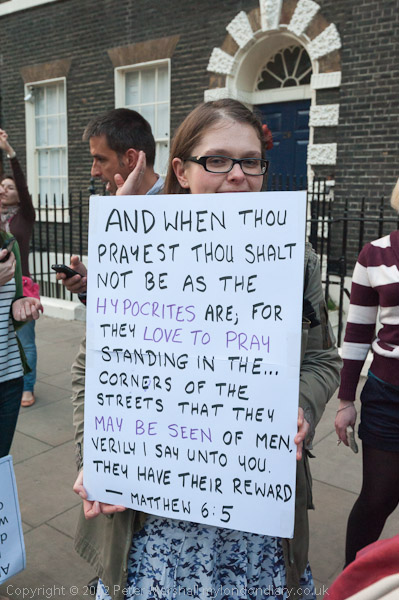 AND WHEN THOU
PRAYEST THOU SHALT
NOT BE AS THE
HYPOCRITES ARE; FOR
THEY LOVE TO PRAY
STANDING IN THE...
CORNERS OF THE
STREETS THAT THEY
MAY BE SEEN OF MEN.
VERILY I SAY UNTO YOU.
THEY HAVE THEIR REWARD
— MATTHEW 6:5
Copyright © 2012 Peter Marshall mylondondiary.co.uk